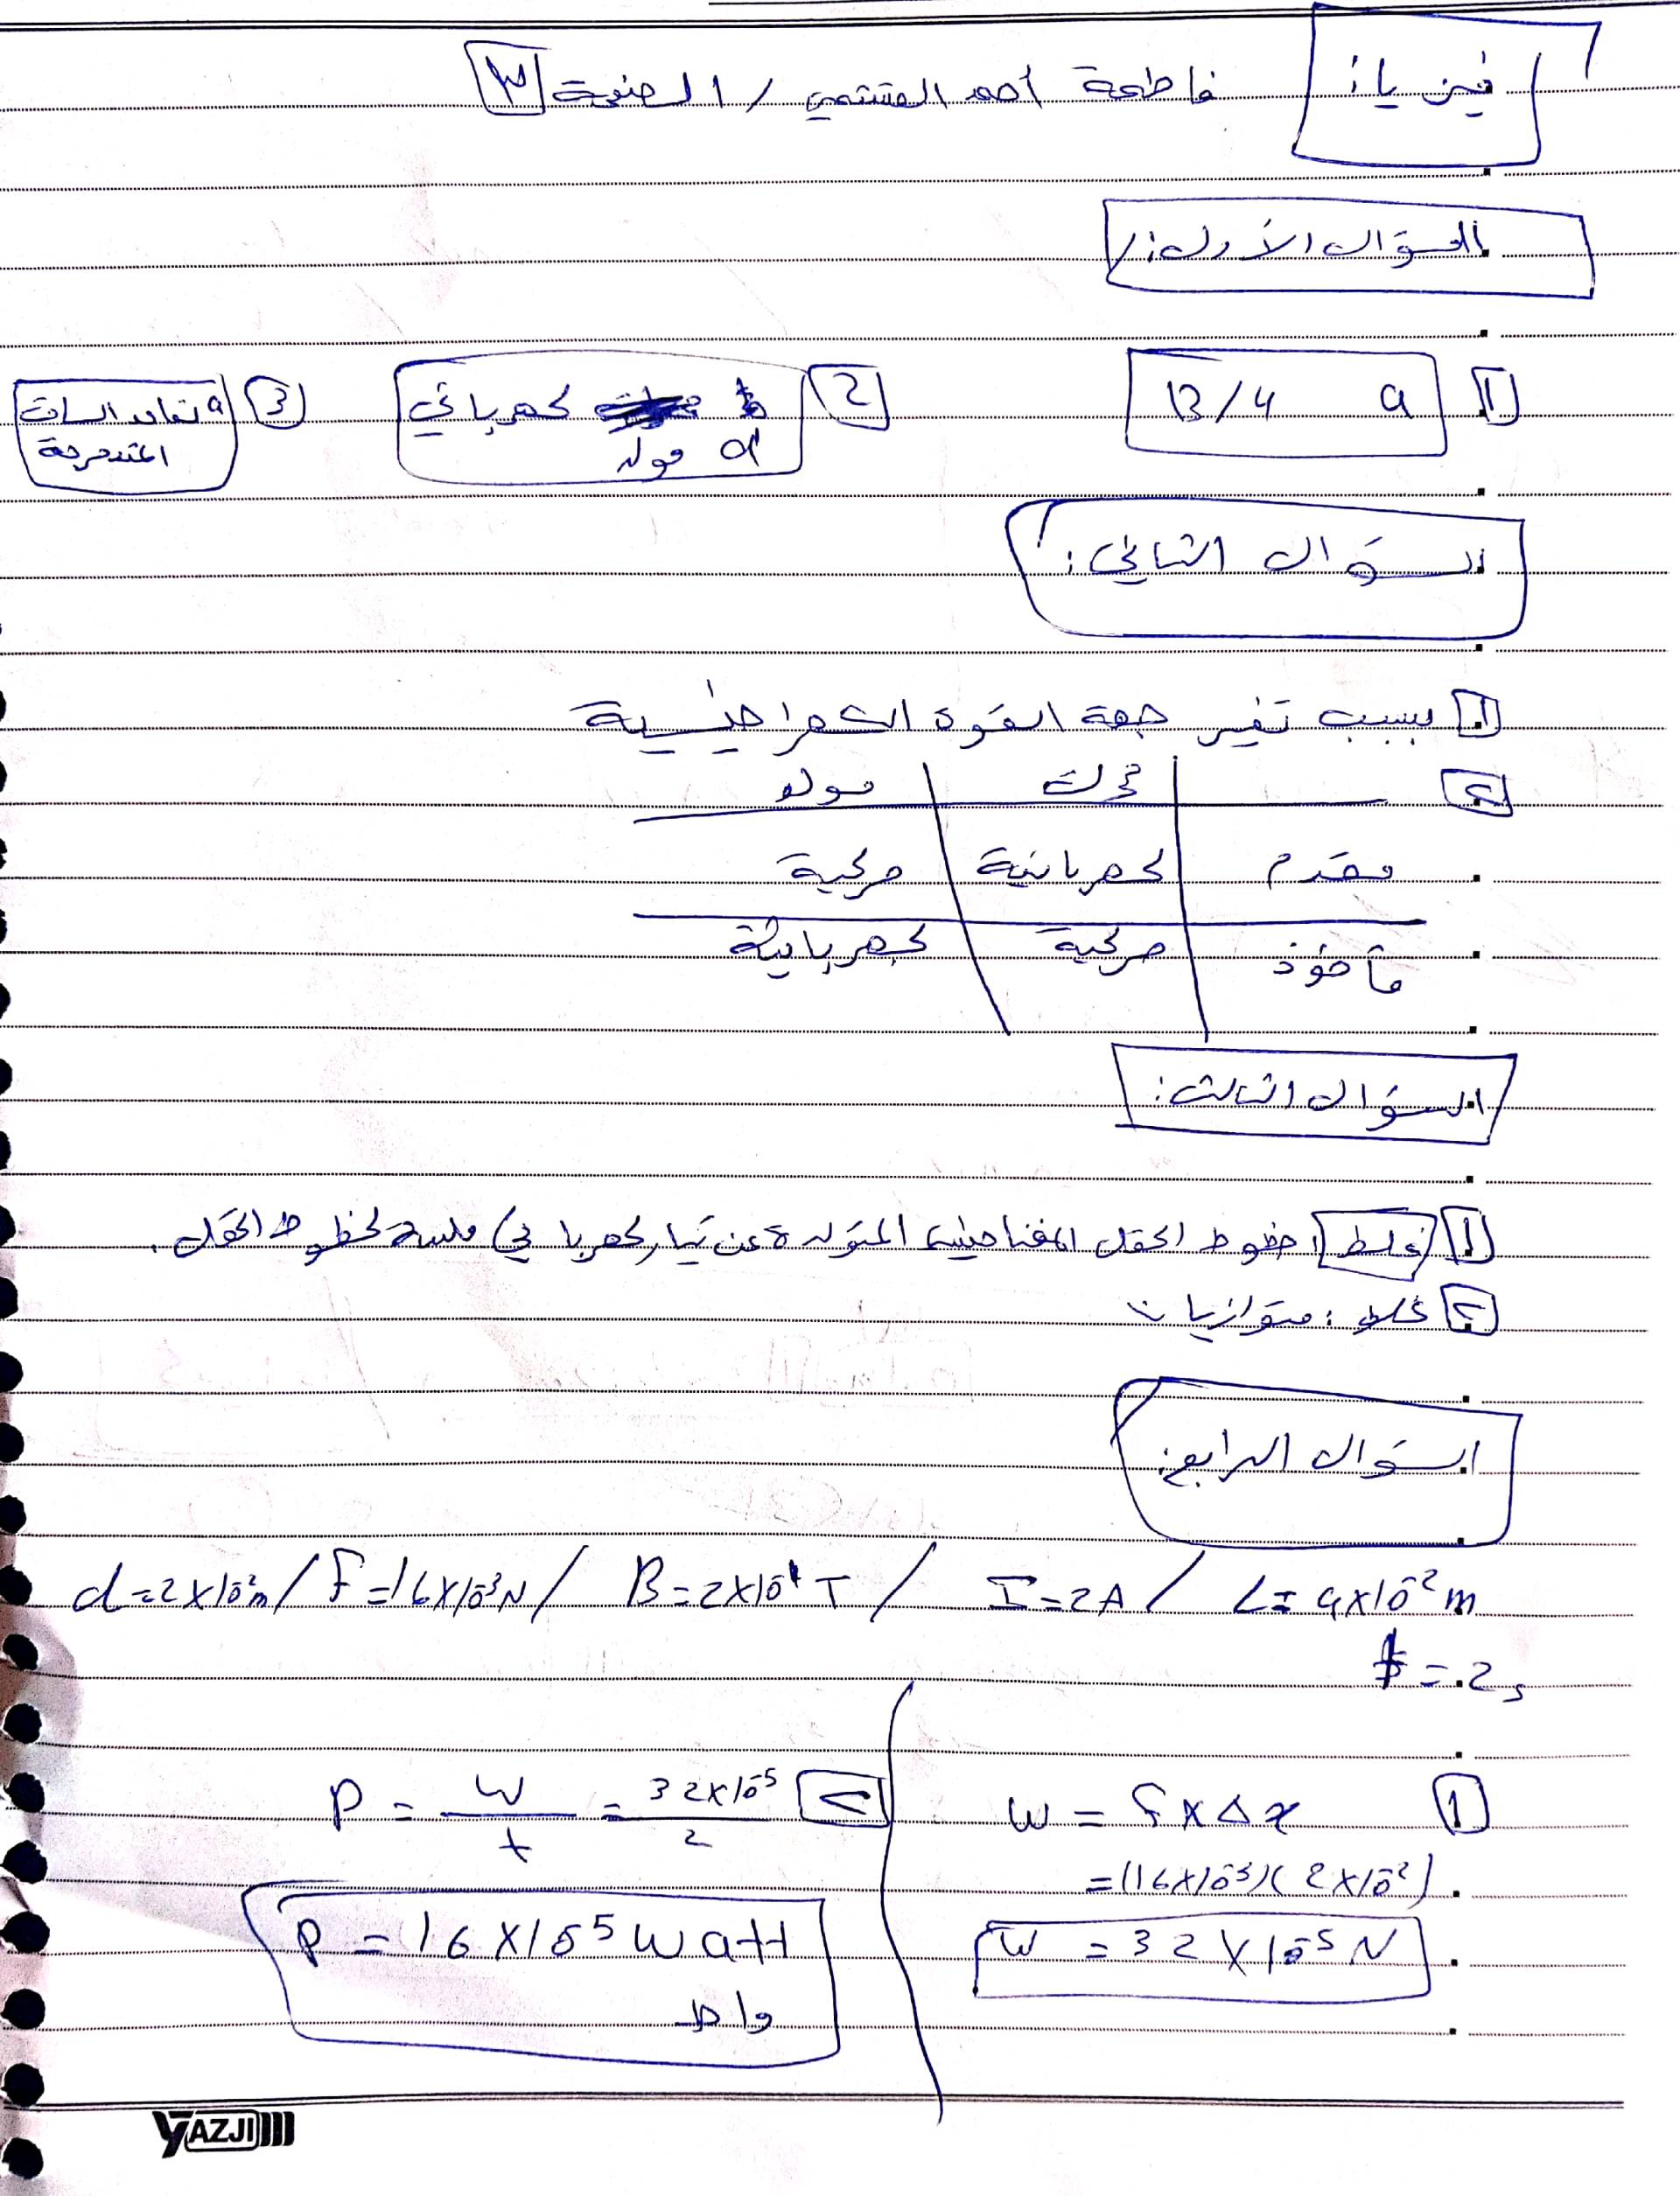 فيزياء: فاطمة أحمد / الصفحة ٣
السؤال الأول:/
1 a B/4 2 كهربائي 3 a تعامد الساق
a مولد المتدحرجة
السؤال الثاني:
1 بسبب تغير جهة القوة الكهراطيسية
2 محرك مولد
مقدم كهربائية حركية
مأخوذ حركية كهربائية
السؤال الثالث:
1 غلط: خطوط الحقل المغناطيسي المتولدة عن تيار كهربائي لخطوط الحقل.
2 غلط: متوازيان
السؤال الرابع:
L = 4×10⁻² m / I = 2A / B = 2×10⁻¹ T / F = 16×10⁻³ N / d = 2×10⁻² m
t = 2s
1 W = F × Δx
= (16×10⁻³)(2×10⁻²)
W = 32×10⁻⁵ N
2 P = W/t = 32×10⁻⁵/2
P = 16×10⁻⁵ watt
واط
YAZJI